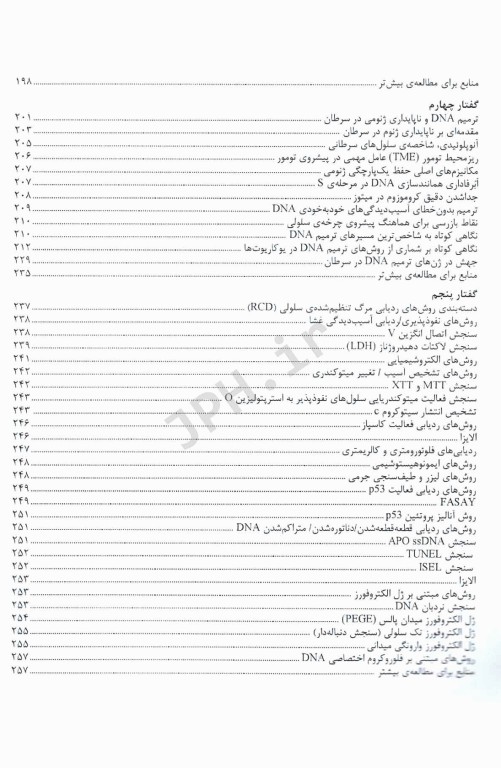 منابع برای مطالعه‌ی بیش‌تر ........ ۱۹۸
گفتار چهارم
ترمیم DNA و ناپایداری ژنومی در سرطان ........ ۲۰۱
مقدمه‌ای بر ناپایداری ژنوم در سرطان ........ ۲۰۳
آنوپلوئیدی، شاخصه‌ی سلول‌های سرطانی ........ ۲۰۵
ریزمحیط تومور (TME) عامل مهمی در پیشروی تومور ........ ۲۰۶
مکانیزم‌های اصلی حفظ یک‌پارچگی ژنومی ........ ۲۰۷
اَبَرفاداری همانندسازی DNA در مرحله‌ی S ........ ۲۰۷
جداشدن دقیق کروموزوم در میتوز ........ ۲۰۸
ترمیم بدون‌خطای آسیب‌دیدگی‌های خودبه‌خودی DNA ........ ۲۰۹
نقاط بازرسی برای هماهنگ پیشروی چرخه‌ی سلولی ........ ۲۱۰
نگاهی کوتاه به شاخص‌ترین مسیرهای ترمیم DNA ........ ۲۱۰
نگاهی کوتاه بر شماری از روش‌های ترمیم DNA در یوکاریوت‌ها ........ ۲۱۲
جهش در ژن‌های ترمیم DNA در سرطان ........ ۲۲۹
منابع برای مطالعه‌ی بیش‌تر ........ ۲۳۵
گفتار پنجم
دسته‌بندی روش‌های ردیابی مرگ تنظیم‌شده‌ی سلولی (RCD) ........ ۲۳۷
روش‌های نفوذپذیری/ردیابی آسیب‌دیدگی غشا ........ ۲۳۸
سنجش اتصال انگزین V ........ ۲۳۸
سنجش لاکتات دهیدروژناز (LDH) ........ ۲۳۹
روش‌های الکتروشیمیایی ........ ۲۴۱
روش‌های تشخیص آسیب / تغییر میتوکندری ........ ۲۴۲
سنجش MTT و XTT ........ ۲۴۲
سنجش فعالیت میتوکندریایی سلول‌های نفوذپذیر به استرپتولیزین O ........ ۲۴۳
تشخیص انتشار سیتوکروم c ........ ۲۴۳
روش‌های ردیابی فعالیت کاسپاز ........ ۲۴۶
الایزا ........ ۲۴۶
ردیابی‌های فلوئورومتری و کالریمتری ........ ۲۴۷
روش‌های ایمونوهیستوشیمی ........ ۲۴۸
روش‌های لیزر و طیف‌سنجی جرمی ........ ۲۴۸
روش‌های ردیابی فعالیت p53 ........ ۲۴۹
FASAY ........ ۲۴۹
روش آنالیز پروتئین p53 ........ ۲۵۱
روش‌های ردیابی قطعه‌قطعه‌شدن/دناتوره‌شدن/ متراکم‌شدن DNA ........ ۲۵۱
سنجش APO ssDNA ........ ۲۵۱
سنجش TUNEL ........ ۲۵۲
سنجش ISEL ........ ۲۵۲
الایزا ........ ۲۵۳
روش‌های مبتنی بر ژل الکتروفورز ........ ۲۵۳
سنجش نردبان DNA ........ ۲۵۳
ژل الکتروفورز میدان پالس (PEGE) ........ ۲۵۴
ژل الکتروفورز تک سلولی (سنجش دنباله‌دار) ........ ۲۵۵
ژل الکتروفورز وارونگی میدانی ........ ۲۵۵
روش‌های مبتنی بر فلوروکروم اختصاصی DNA ........ ۲۵۷
منابع برای مطالعه‌ی بیشتر ........ ۲۵۷
JPH.ir